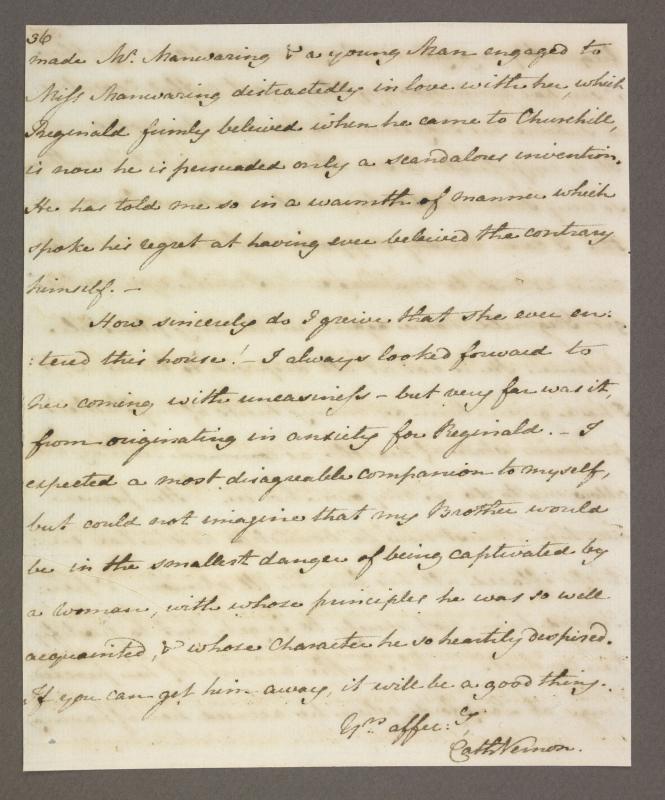 36
made Mr. Manwaring & a young Man engaged to
Miss Manwaring distractedly in love with her, which
Reginald firmly beleived when he came to Churchill,
is now he is persuaded only a scandalous invention.
He has told me so in a warmth of manner which
spoke his regret at having ever beleived the contrary
himself. –
How sincerely do I greive that she ever en:
:tered this house! – I always looked forward to
her coming with uneasiness – but very far was it,
from originating in anxiety for Reginald. – I
expected a most disagreable companion to myself,
but could not imagine that my Brother would
be in the smallest danger of being captivated by
a woman, with whose principles he was so well
acquainted, & whose Character he so heartily despised.
If you can get him away, it will be a good thing.
Yrs. affec:ly
Cath Vernon.